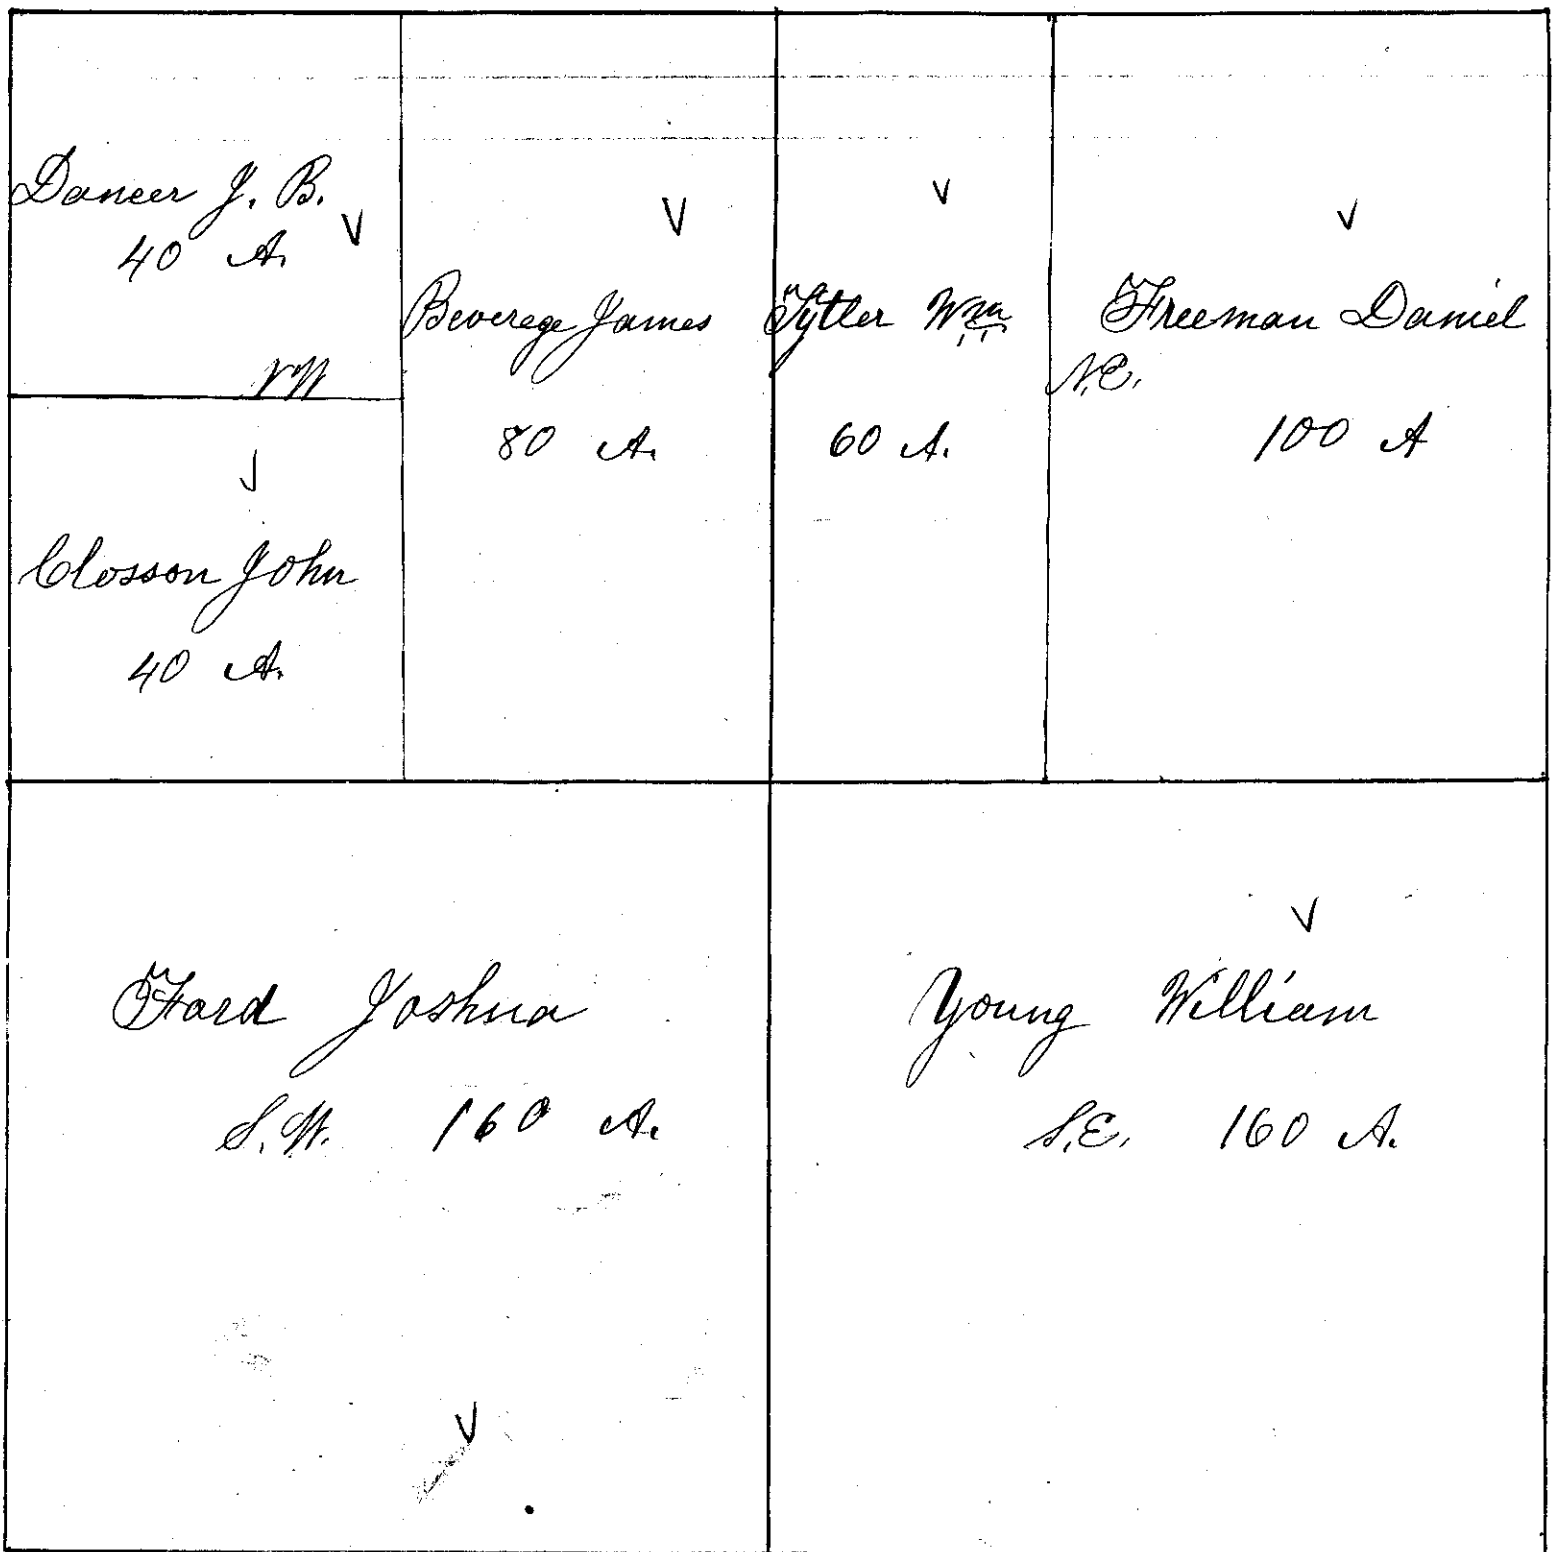 Dancer J. B.
40 A.
NW
Closson John
40 A.
Beverege James
80 A.
Tytler Wm
60 A.
Freeman Daniel
N.E.
100 A
Ford Joshua
S.W. 160 A.
Young William
S.E. 160 A.